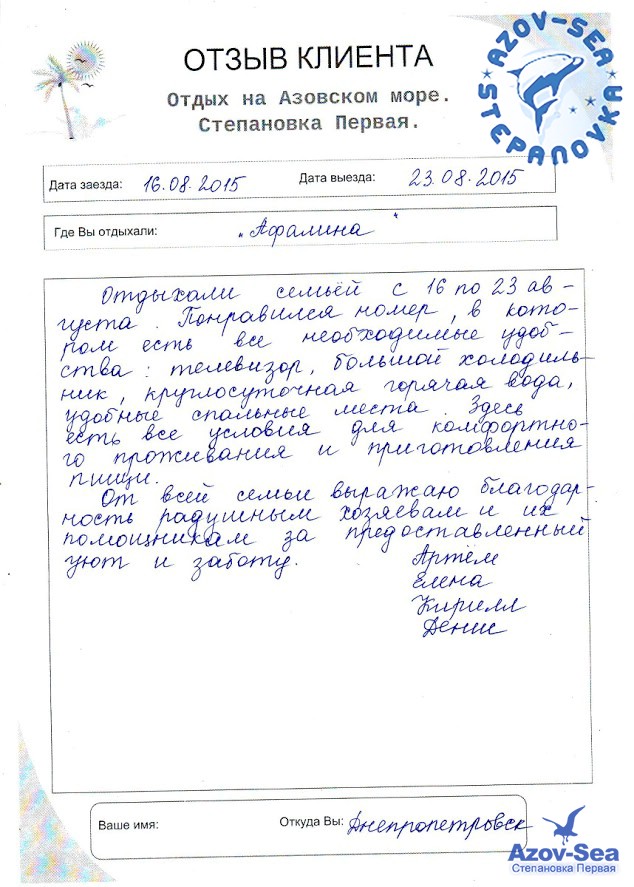 ОТЗЫВ КЛИЕНТА
AZOV-SEA
STEPANOVKA
Отдых на Азовском море.
Степановка Первая.
Дата заезда: 16.08.2015 Дата выезда: 23.08.2015
Где Вы отдыхали: "Афалина"
Отдыхали семьёй с 16 по 23 ав-
густа. Понравился номер, в кото-
ром есть все необходимые удоб-
ства: телевизор, большой холодиль-
ник, круглосуточная горячая вода,
удобные спальные места. Здесь
есть все условия для комфортно-
го проживания и приготовления
пищи.
От всей семьи выражаю благодар-
ность радушным хозяевам и их
помощникам за предоставленный
уют и заботу.
Артём
Елена
Кирилл
Денис
Ваше имя: Откуда Вы: Днепропетровск
Azov-Sea
Степановка Первая